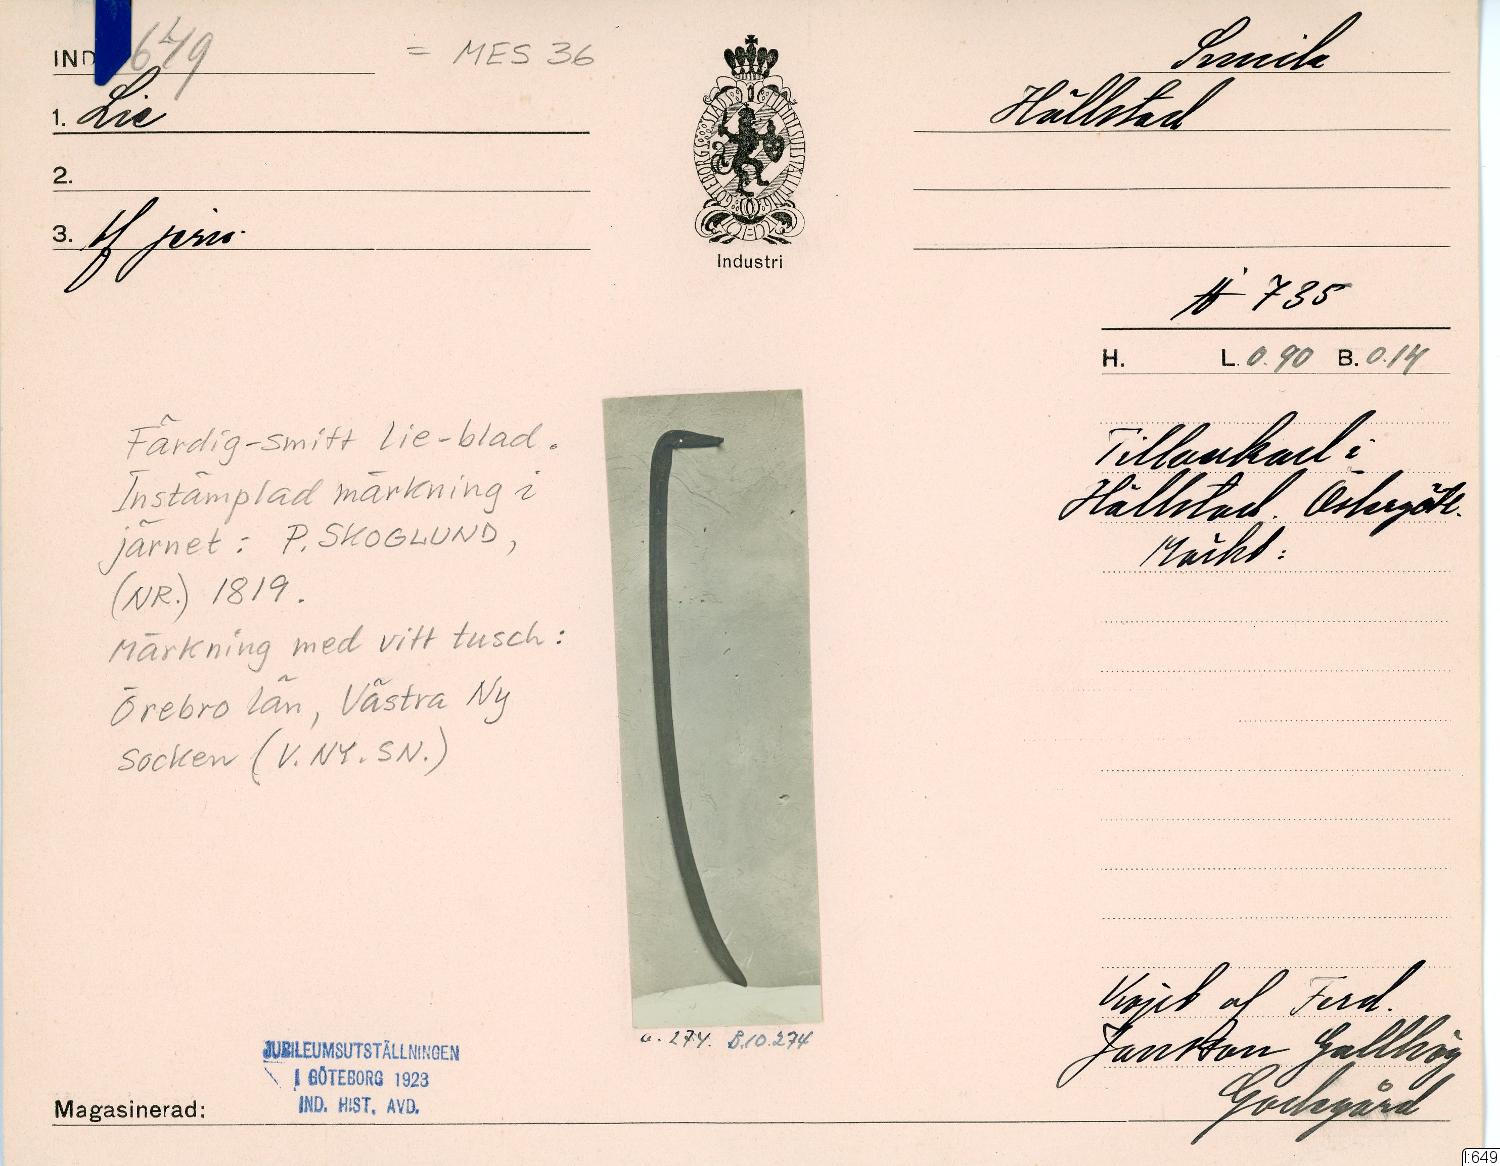 IND 649 = MES 36
1. Lie
2.
3. af järn.
GÖTEBORGS STADS
Industri
Smide
Hällstad
# 735
H. L. 0.90 B. 0.14
Färdig-smitt lie-blad.
Instämplad märkning i
järnet: P. SKOGLUND,
(NR.) 1819.
Märkning med vitt tusch:
Örebro län, Västra Ny
socken (V. NY. SN.)
Tillverkad i
Hällstad. Östergötl.
Märkt:
a. 274. B.10.274
af Ferd.
Gallhög
Godegård
JUBILEUMSUTSTÄLLNINGEN
I GÖTEBORG 1923
IND. HIST. AVD.
Magasinerad:
I:649